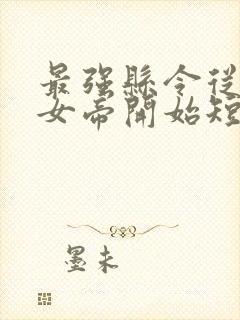 最強縣令從
女帝開始短
墨未